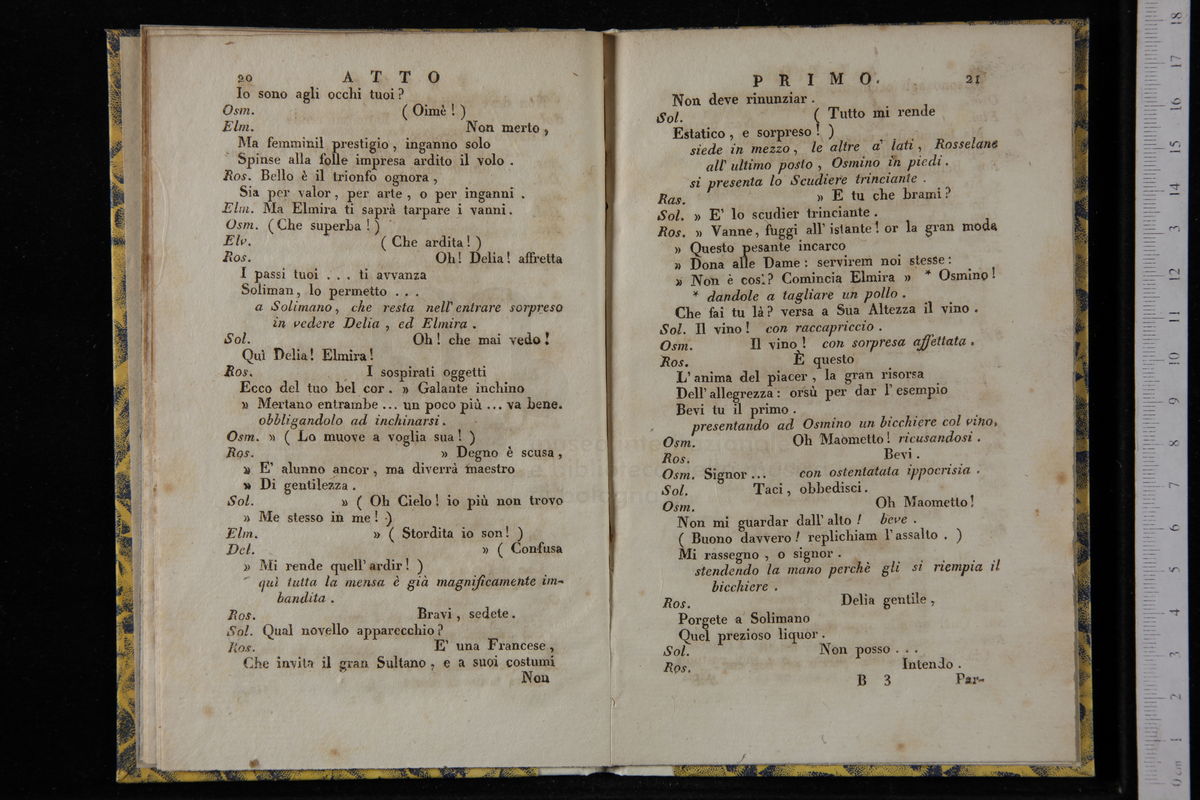 20 ATTO
Io sono agli occhi tuoi?
Osm. ( Oimè ! )
Elm. Non merto ,
Ma femminil prestigio , inganno solo
Spinse alla folle impresa ardito il volo .
Ros. Bello è il trionfo ognora ,
Sia per valor , per arte , o per inganni .
Elm. Ma Elmira ti saprà tarpare i vanni .
Osm. ( Che superba ! )
Elv. ( Che ardita ! )
Ros. Oh ! Delia ! affretta
I passi tuoi . . . ti avvanza
Soliman , lo permetto . . .
a Solimano , che resta nell' entrare sorpreso
in vedere Delia , ed Elmira .
Sol. Oh ! che mai vedo !
Quì Delia ! Elmira !
Ros. I sospirati oggetti
Ecco del tuo bel cor . » Galante inchino
» Mertano entrambe ... un poco più ... va bene.
obbligandolo ad inchinarsi .
Osm. » ( Lo muove a voglia sua ! )
Ros. » Degno è scusa ,
» E' alunno ancor , ma diverrà maestro
» Di gentilezza .
Sol. » ( Oh Cielo ! io più non trovo
» Me stesso in me ! )
Elm. » ( Stordita io son ! )
Del. » ( Confusa
» Mi rende quell' ardir ! )
quì tutta la mensa è già magnificamente im-
bandita .
Ros. Bravi , sedete .
Sol. Qual novello apparecchio ?
Ros. E' una Francese ,
Che invita il gran Sultano , e a suoi costumi
Non
PRIMO. 21
Non deve rinunziar .
Sol. ( Tutto mi rende
Estatico , e sorpreso ! )
siede in mezzo , le altre a' lati , Rosselane
all' ultimo posto , Osmino in piedi .
si presenta lo Scudiere trinciante .
Ras. » E tu che brami ?
Sol. » E' lo scudier trinciante .
Ros. » Vanne , fuggi all' istante ! or la gran moda
» Questo pesante incarco
» Dona alle Dame : servirem noi stesse :
» Non è così ? Comincia Elmira » * Osmino !
* dandole a tagliare un pollo .
Che fai tu là ? versa a Sua Altezza il vino .
Sol. Il vino ! con raccapriccio .
Osm. Il vino ! con sorpresa affettata .
Ros. È questo
L' anima del piacer , la gran risorsa
Dell' allegrezza : orsù per dar l' esempio
Bevi tu il primo .
presentando ad Osmino un bicchiere col vino,
Osm. Oh Maometto ! ricusandosi .
Ros. Bevi .
Osm. Signor ... con ostentatata ippocrisia .
Sol. Taci , obbedisci .
Osm. Oh Maometto !
Non mi guardar dall' alto ! beve .
( Buono davvero ! replichiam l' assalto . )
Mi rassegno , o signor .
stendendo la mano perchè gli si riempia il
bicchiere .
Ros. Delia gentile ,
Porgete a Solimano
Quel prezioso liquor .
Sol. Non posso . . .
Ros. Intendo .
B 3 Par-